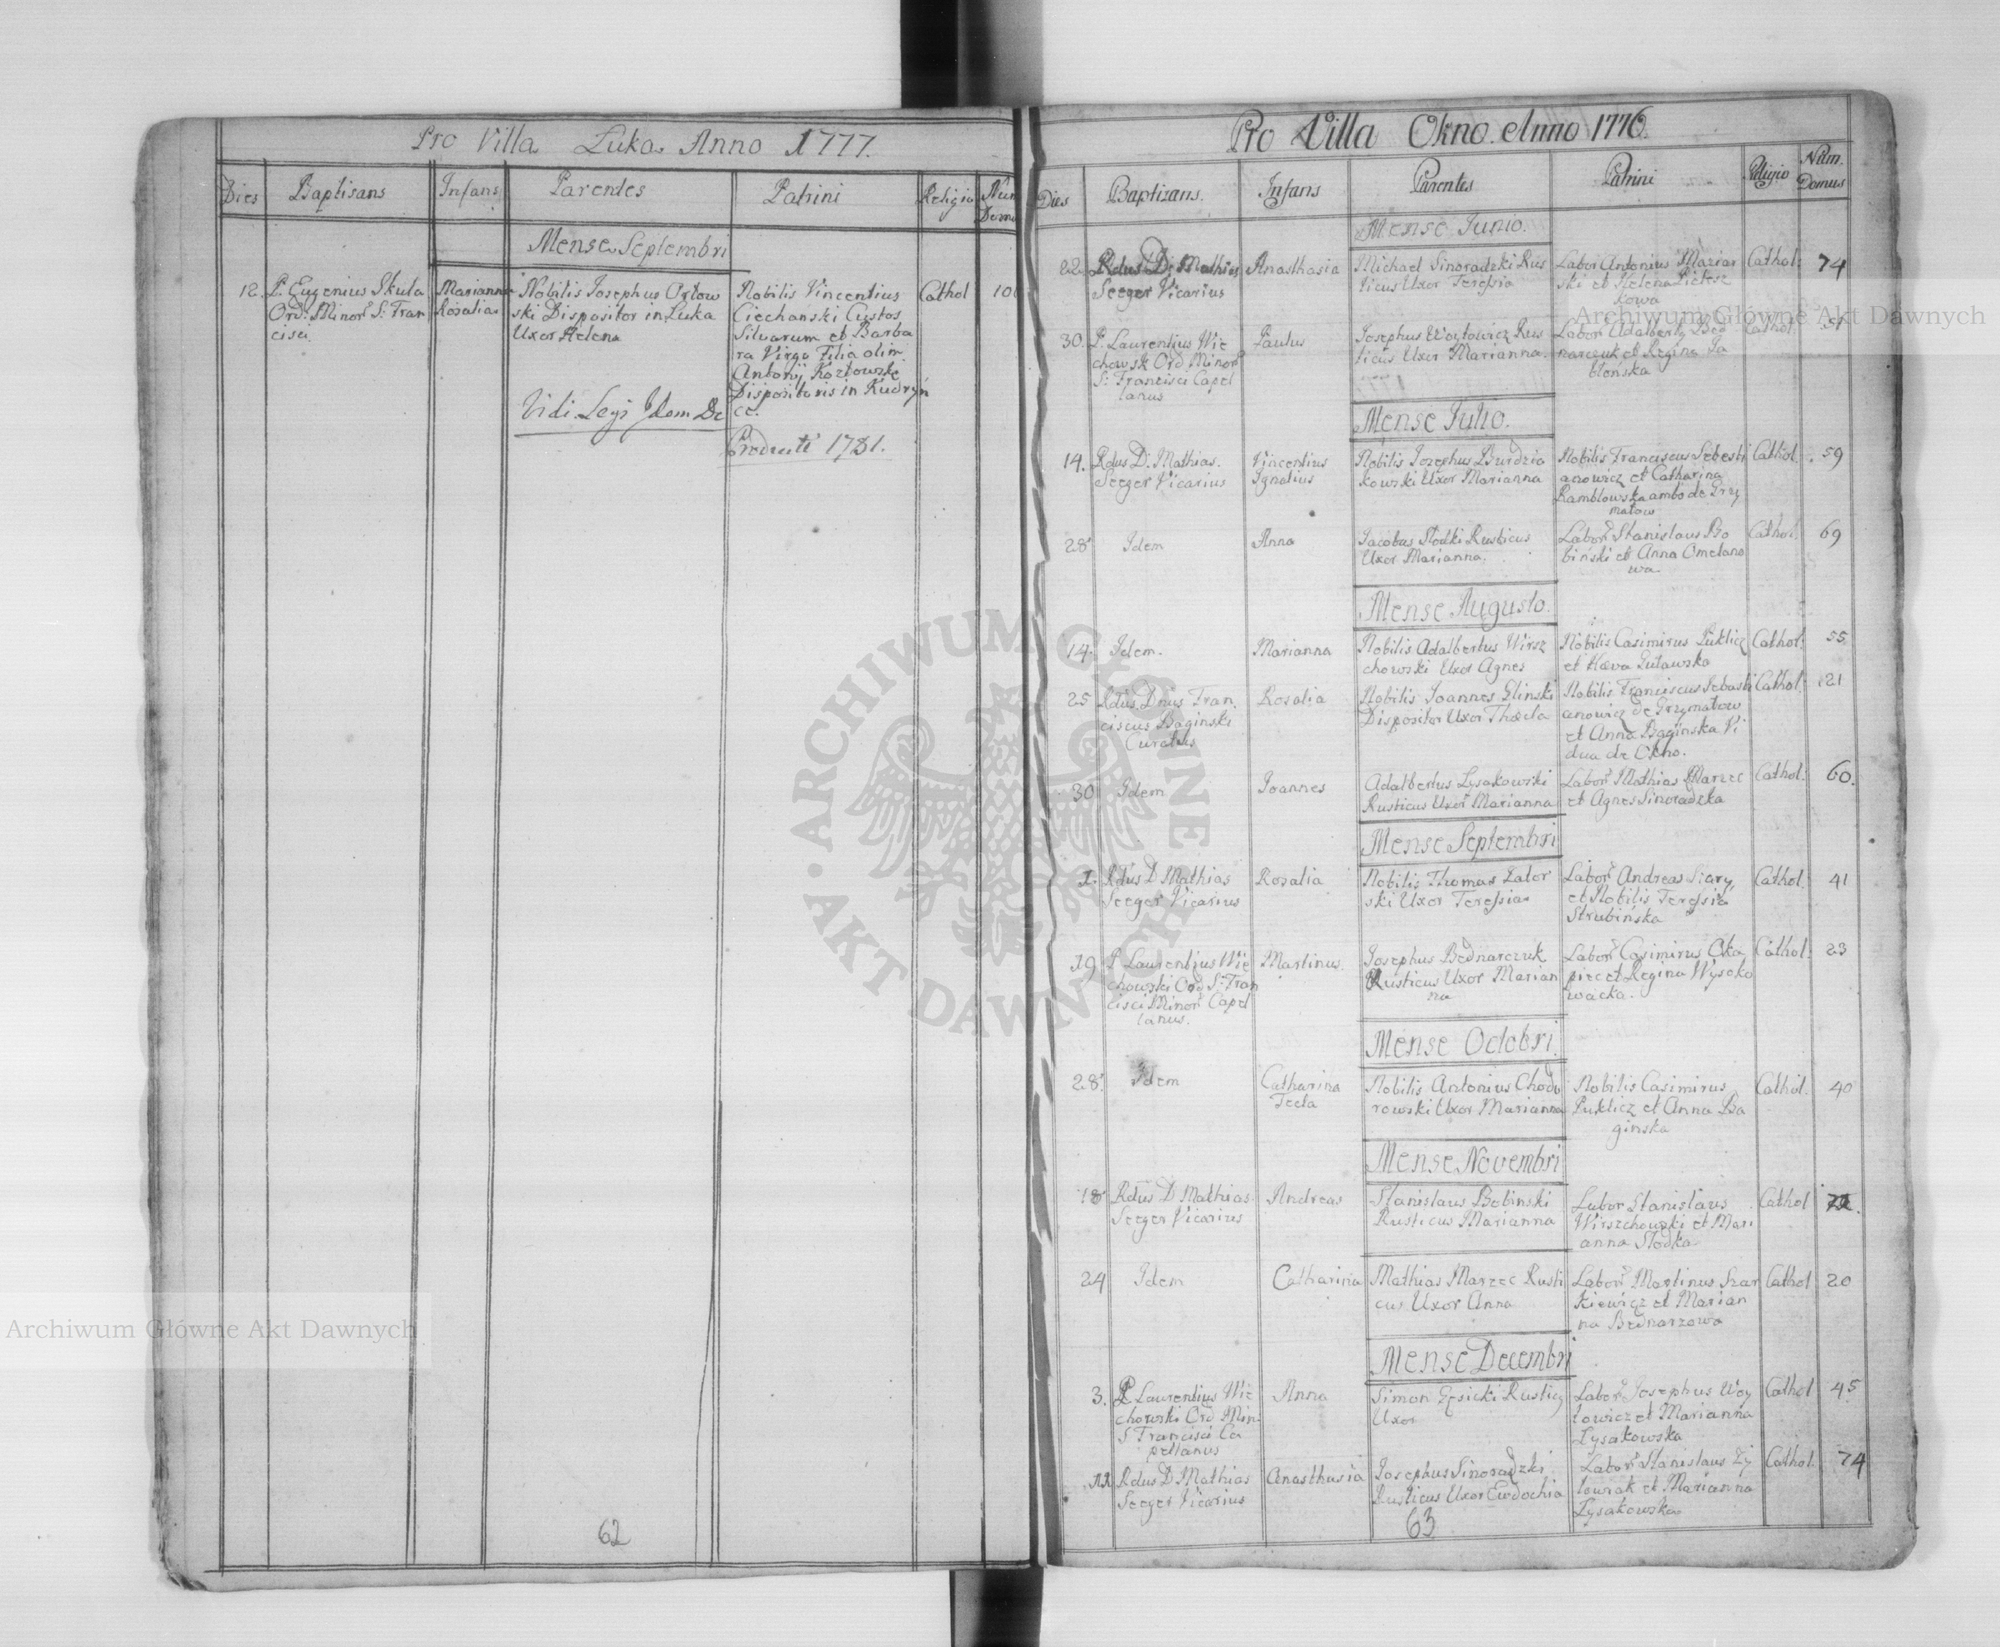 Pro Villa Luka Anno 1777.
Dies Baptisans Infans Parentes Patrini Religio Num Domus
Mense Septembri
12. P. Eugenius Skula
Ord: Minor S: Fran
cisci
Marianna
Rosalia
Nobilis Josephus Orłow
ski Dispositor in Luka
Uxor Helena
Nobilis Vincentius
Ciechanski Custos
Silvarum et Barba
ra Virgo Filia olim
Antonij Kozłowski
Dispositoris in Kudryn
ce.
Cathol 10
Vidi Legi Idem De
Producti 1781.
62
Pro Villa Okno Anno 1776.
Dies Baptizans. Infans Parentes Patrini Religio Num. Domus
Mense Junio.
22. Rdus D: Mathias
Seeger Vicarius
Anasthasia
Michael Sinoradzki Rus
ticus Uxor Teressia
Labor Antonius Marian
ski et Helena
kowa
Cathol: 74
30. P. Laurentius Wie
chowsk Ord Minor
S: Francisci Capel
lanus
Paulus
Josephus Woytowicz Rus
ticus Uxor Marianna.
Labor Adalbert Bed
narczuk et Regina Ja
błonska
Cathol:
Mense Julio.
14. Rdus D. Mathias.
Seeger Vicarius
Vincentius
Ignatius
Nobilis Josephus Burdzia
kowski Uxor Marianna
Nobilis Franciscus Sebesti
anowicz et Catharina
Ramblowska ambo de Grzy
małow
Cathol. 59
28. Idem
Anna
Jacobus Słodki Rusticus
Uxor Marianna.
Labor Stanislaus Bo
binski et Anna Omelano
wa
Cathol. 69
Mense Augusto.
14. Idem.
Marianna
Nobilis Adalbertus Wirsz
chowski Uxor Agnes
Nobilis Casimirus Puklicz
et Hæva Puławska
Cathol: 55
25 Rdus Dnus Fran
ciscus Baginski
Curatus
Rosalia
Nobilis Joannes Glinski
Dispositor Uxor Thæcla
Nobilis Franciscus Sebasti
anowicz de Grzymałow
et Anna Baginska Vi
dua de Okno.
Cathol: 121
30 Idem
Joannes
Adalbertus Łysakowski
Rusticus Uxor Marianna
Labor Mathias Marzec
et Agnes Sinoradzka
Cathol: 60.
Mense Septembri
1. Rdus D Mathias
Seeger Vicarius
Rosalia
Nobilis Thomas Zator
ski Uxor Teressia
Labor Andreas Siary
et Nobilis Teressia
Strubińska
Cathol. 41
19 P Laurentius Wie
chowski Ord S: Fran
cisci Minor Capel
lanus.
Martinus.
Josephus Bednarczuk
Rusticus Uxor Marian
na
Labor Casimirus Oka
piec et Regina Wysoko
wacka.
Cathol. 23
Mense Octobri.
28. Idem
Catharina
Tecla
Nobilis Antonius Chodo
rowski Uxor Marianna
Nobilis Casimirus
Puklicz et Anna Ba
ginska
Cathol. 40
Mense Novembri
18 Rdus D Mathias
Seeger Vicarius
Andreas
Stanislaus Bobinski
Rusticus Marianna
Labor Stanislaus
Wirszchowski et Mari
anna Słodka
Cathol
24 Idem
Catharina
Mathias Marzec Rusti
cus Uxor Anna
Labor Martinus Szar
kiewicz et Marian
na Bednarzowa
Cathol 20
Mense Decembri
3. P. Laurentius Wie
chowski Ord Min.
S Francisci Ca
pellanus
Anna
Simon Gęsicki Rustic
Uxor
Labor Josephus Woy
towicz et Marianna
Łysakowska
Cathol 45
Rdus D Mathias
Seeger Vicarius
Anasthasia
Josephus Sinoradzki
Rusticus Uxor Eudochia
Labor Stanislaus Ży
towiak et Marianna
Łysakowska
Cathol. 74
63
Archiwum Główne Akt Dawnych
Archiwum Główne Akt Dawnych
ARCHIWUM GŁÓWNE · AKT DAWNYCH ·